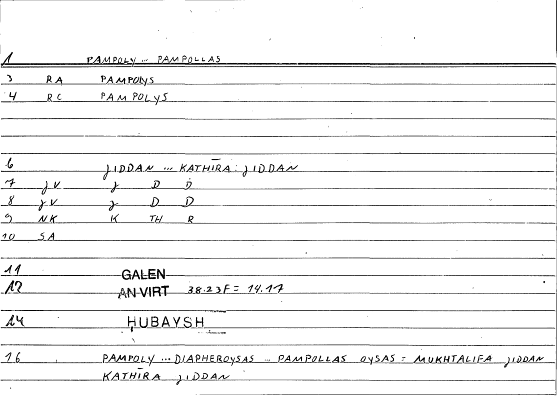 1 PAMPOLY ... PAMPOLLAS
3 RA PAMPOLYS
4 RC PAMPOLYS
6 JIDDAN ... KATHĪRA JIDDAN
7 JV J D D
8 JV J D D
9 NK K TH R
10 SA
11 GALEN
12 AN VIRT 38.23F = 14.17
14 HUBAYSH
16 PAMPOLY ... DIAPHEROYSAS ... PAMPOLLAS OYSAS = MUKHTALIFA JIDDAN
KATHĪRA JIDDAN